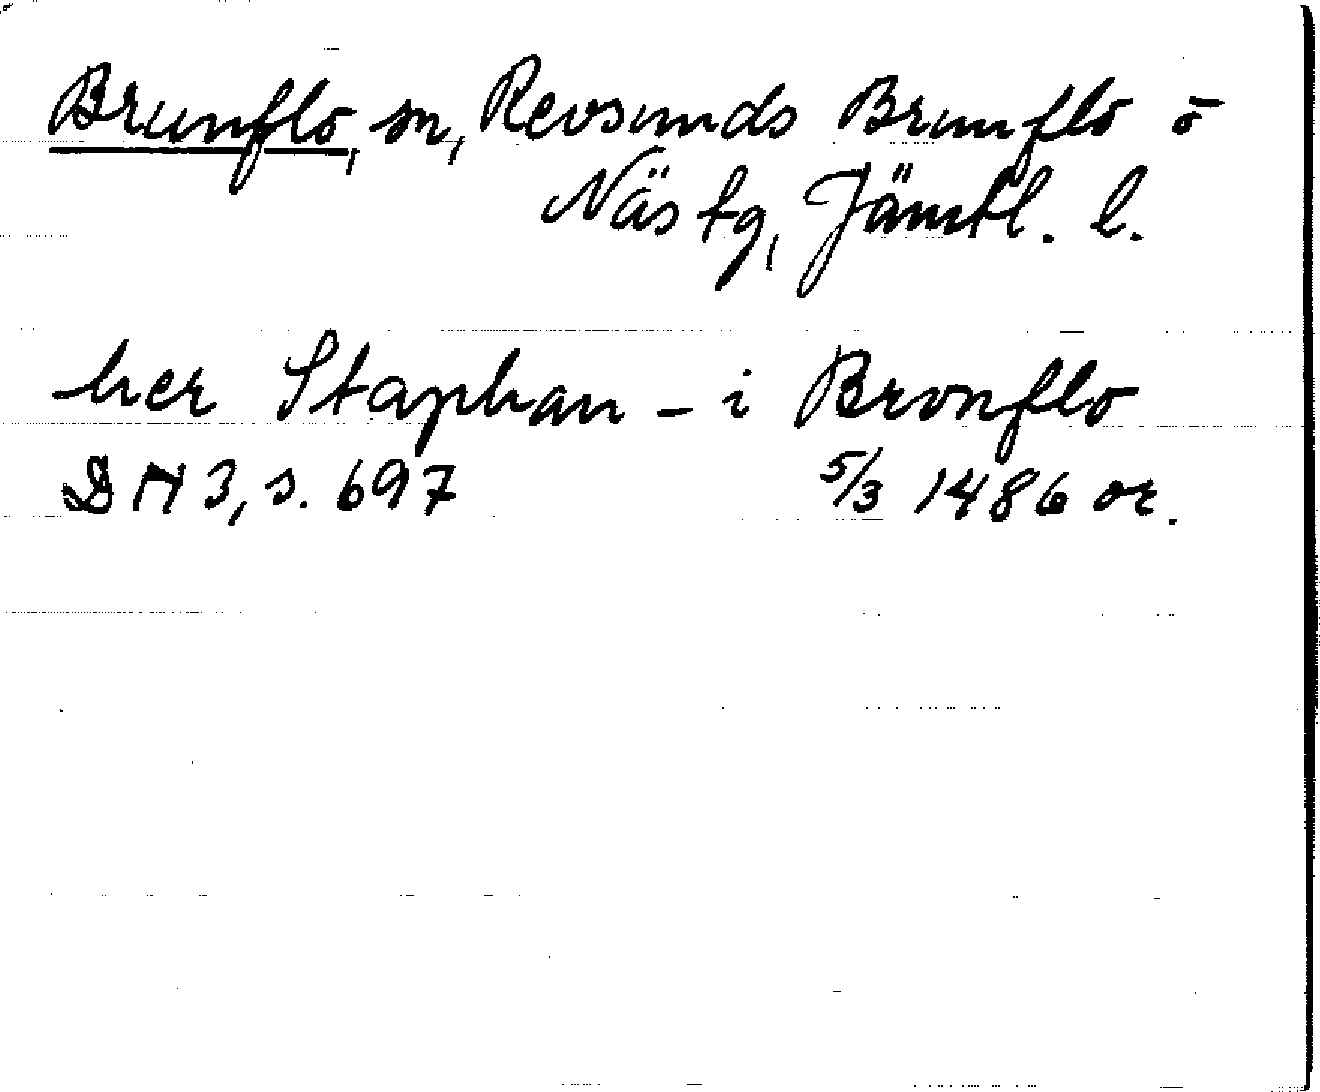 Brunflo, sn, Revsunds Brunflo o
Näs tg, Jämtl. l.
her Staphan - i Bronflo
DN 3, s. 697 5/3 1486 or.